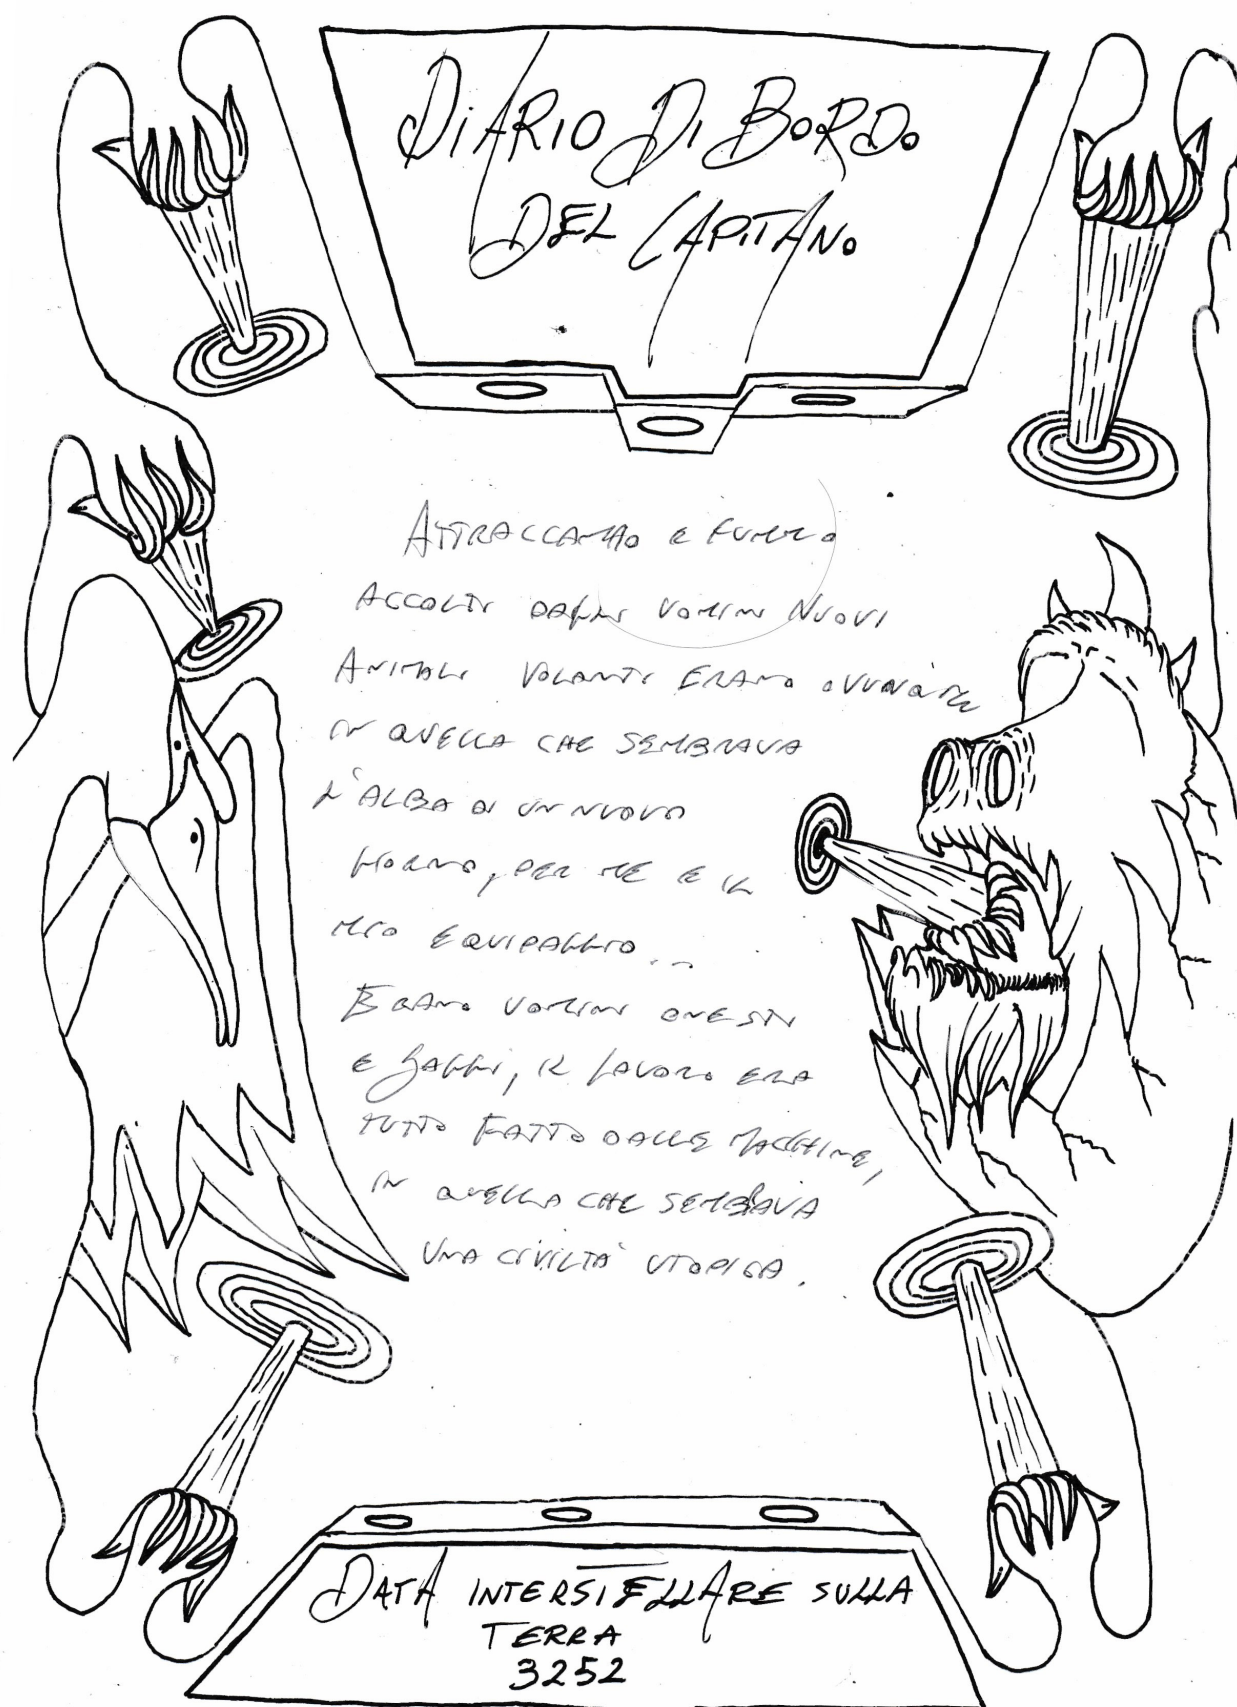 DIARIO DI BORDO
DEL CAPITANO
ATTRACCAMMO E FUMMO
ACCOLTI DAGLI UOMINI NUOVI
ANIMALI VOLANTI ERANO OVUNQUE
IN QUELLA CHE SEMBRAVA
L'ALBA DI UN NUOVO
GIORNO, PER ME E IL
MIO EQUIPAGGIO...
ERANO UOMINI ONESTI
E SAGGI, IL LAVORO ERA
TUTTO FATTO DALLE MACCHINE,
IN QUELLA CHE SEMBRAVA
UNA CIVILTÀ UTOPICA.
DATA INTERSTELLARE SULLA
TERRA
3252